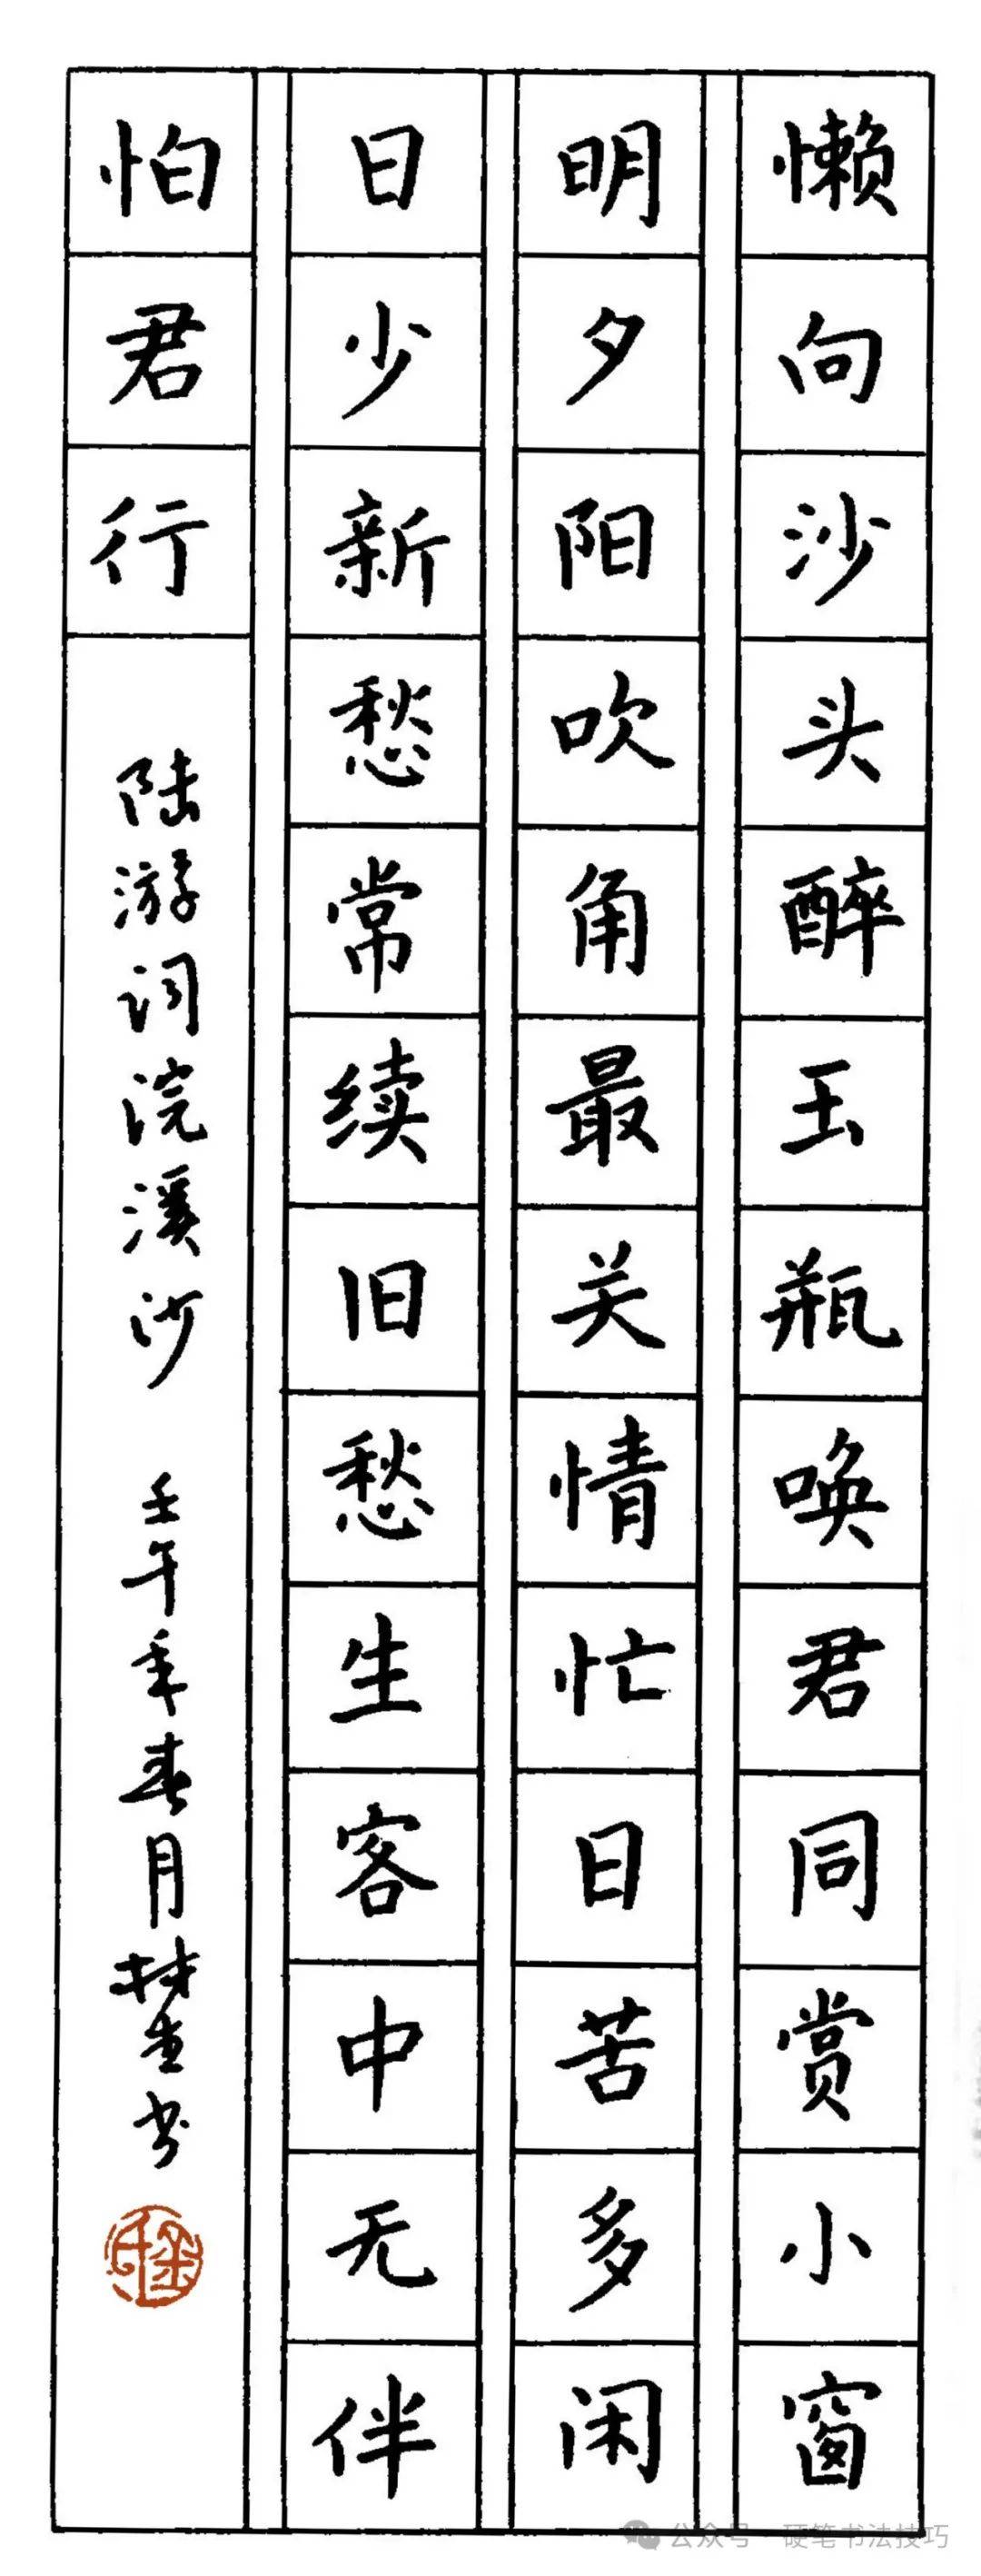 懒向沙头醉玉瓶唤君同赏小窗
明夕阳吹角最关情忙日苦多闲
日少新愁常续旧愁生客中无伴
怕君行
陆游词浣溪沙 壬午年春月楚生书
公众号 · 硬笔书法技巧